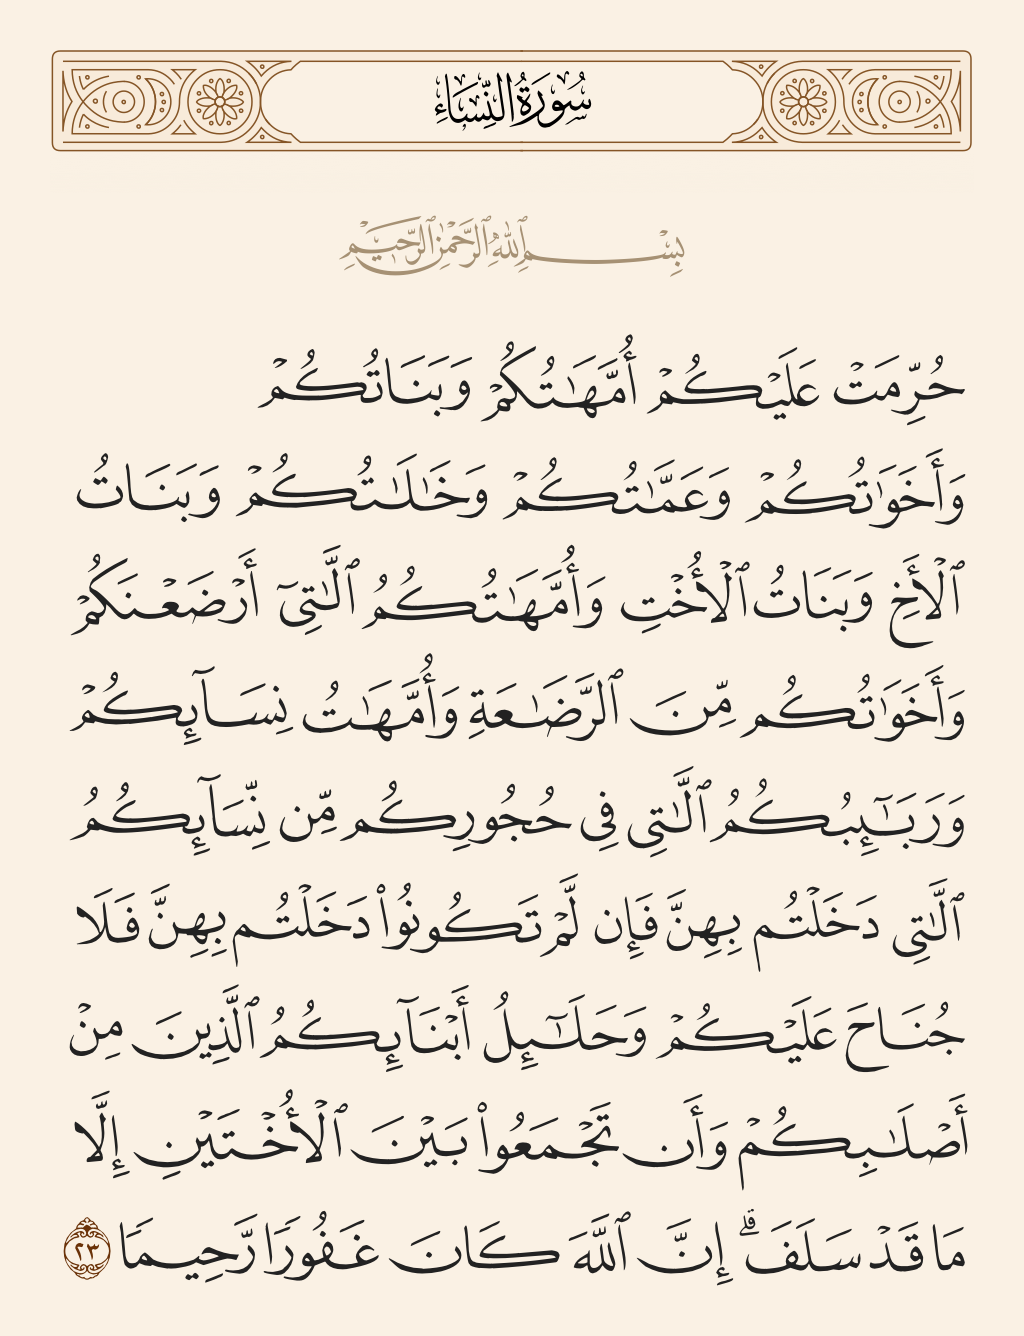 سُورَةُ النِّسَاءِ
بِسْمِ ٱللَّهِ ٱلرَّحْمَٰنِ ٱلرَّحِيمِ
حُرِّمَتْ عَلَيْكُمْ أُمَّهَٰتُكُمْ وَبَنَاتُكُمْ
وَأَخَوَٰتُكُمْ وَعَمَّٰتُكُمْ وَخَٰلَٰتُكُمْ وَبَنَاتُ
ٱلْأَخِ وَبَنَاتُ ٱلْأُخْتِ وَأُمَّهَٰتُكُمُ ٱلَّٰتِىٓ أَرْضَعْنَكُمْ
وَأَخَوَٰتُكُم مِّنَ ٱلرَّضَٰعَةِ وَأُمَّهَٰتُ نِسَآئِكُمْ
وَرَبَٰٓئِبُكُمُ ٱلَّٰتِى فِى حُجُورِكُم مِّن نِّسَآئِكُمُ
ٱلَّٰتِى دَخَلْتُم بِهِنَّ فَإِن لَّمْ تَكُونُوا۟ دَخَلْتُم بِهِنَّ فَلَا
جُنَاحَ عَلَيْكُمْ وَحَلَٰٓئِلُ أَبْنَآئِكُمُ ٱلَّذِينَ مِنْ
أَصْلَٰبِكُمْ وَأَن تَجْمَعُوا۟ بَيْنَ ٱلْأُخْتَيْنِ إِلَّا
مَا قَدْ سَلَفَ ۗ إِنَّ ٱللَّهَ كَانَ غَفُورًا رَّحِيمًا ٢٣